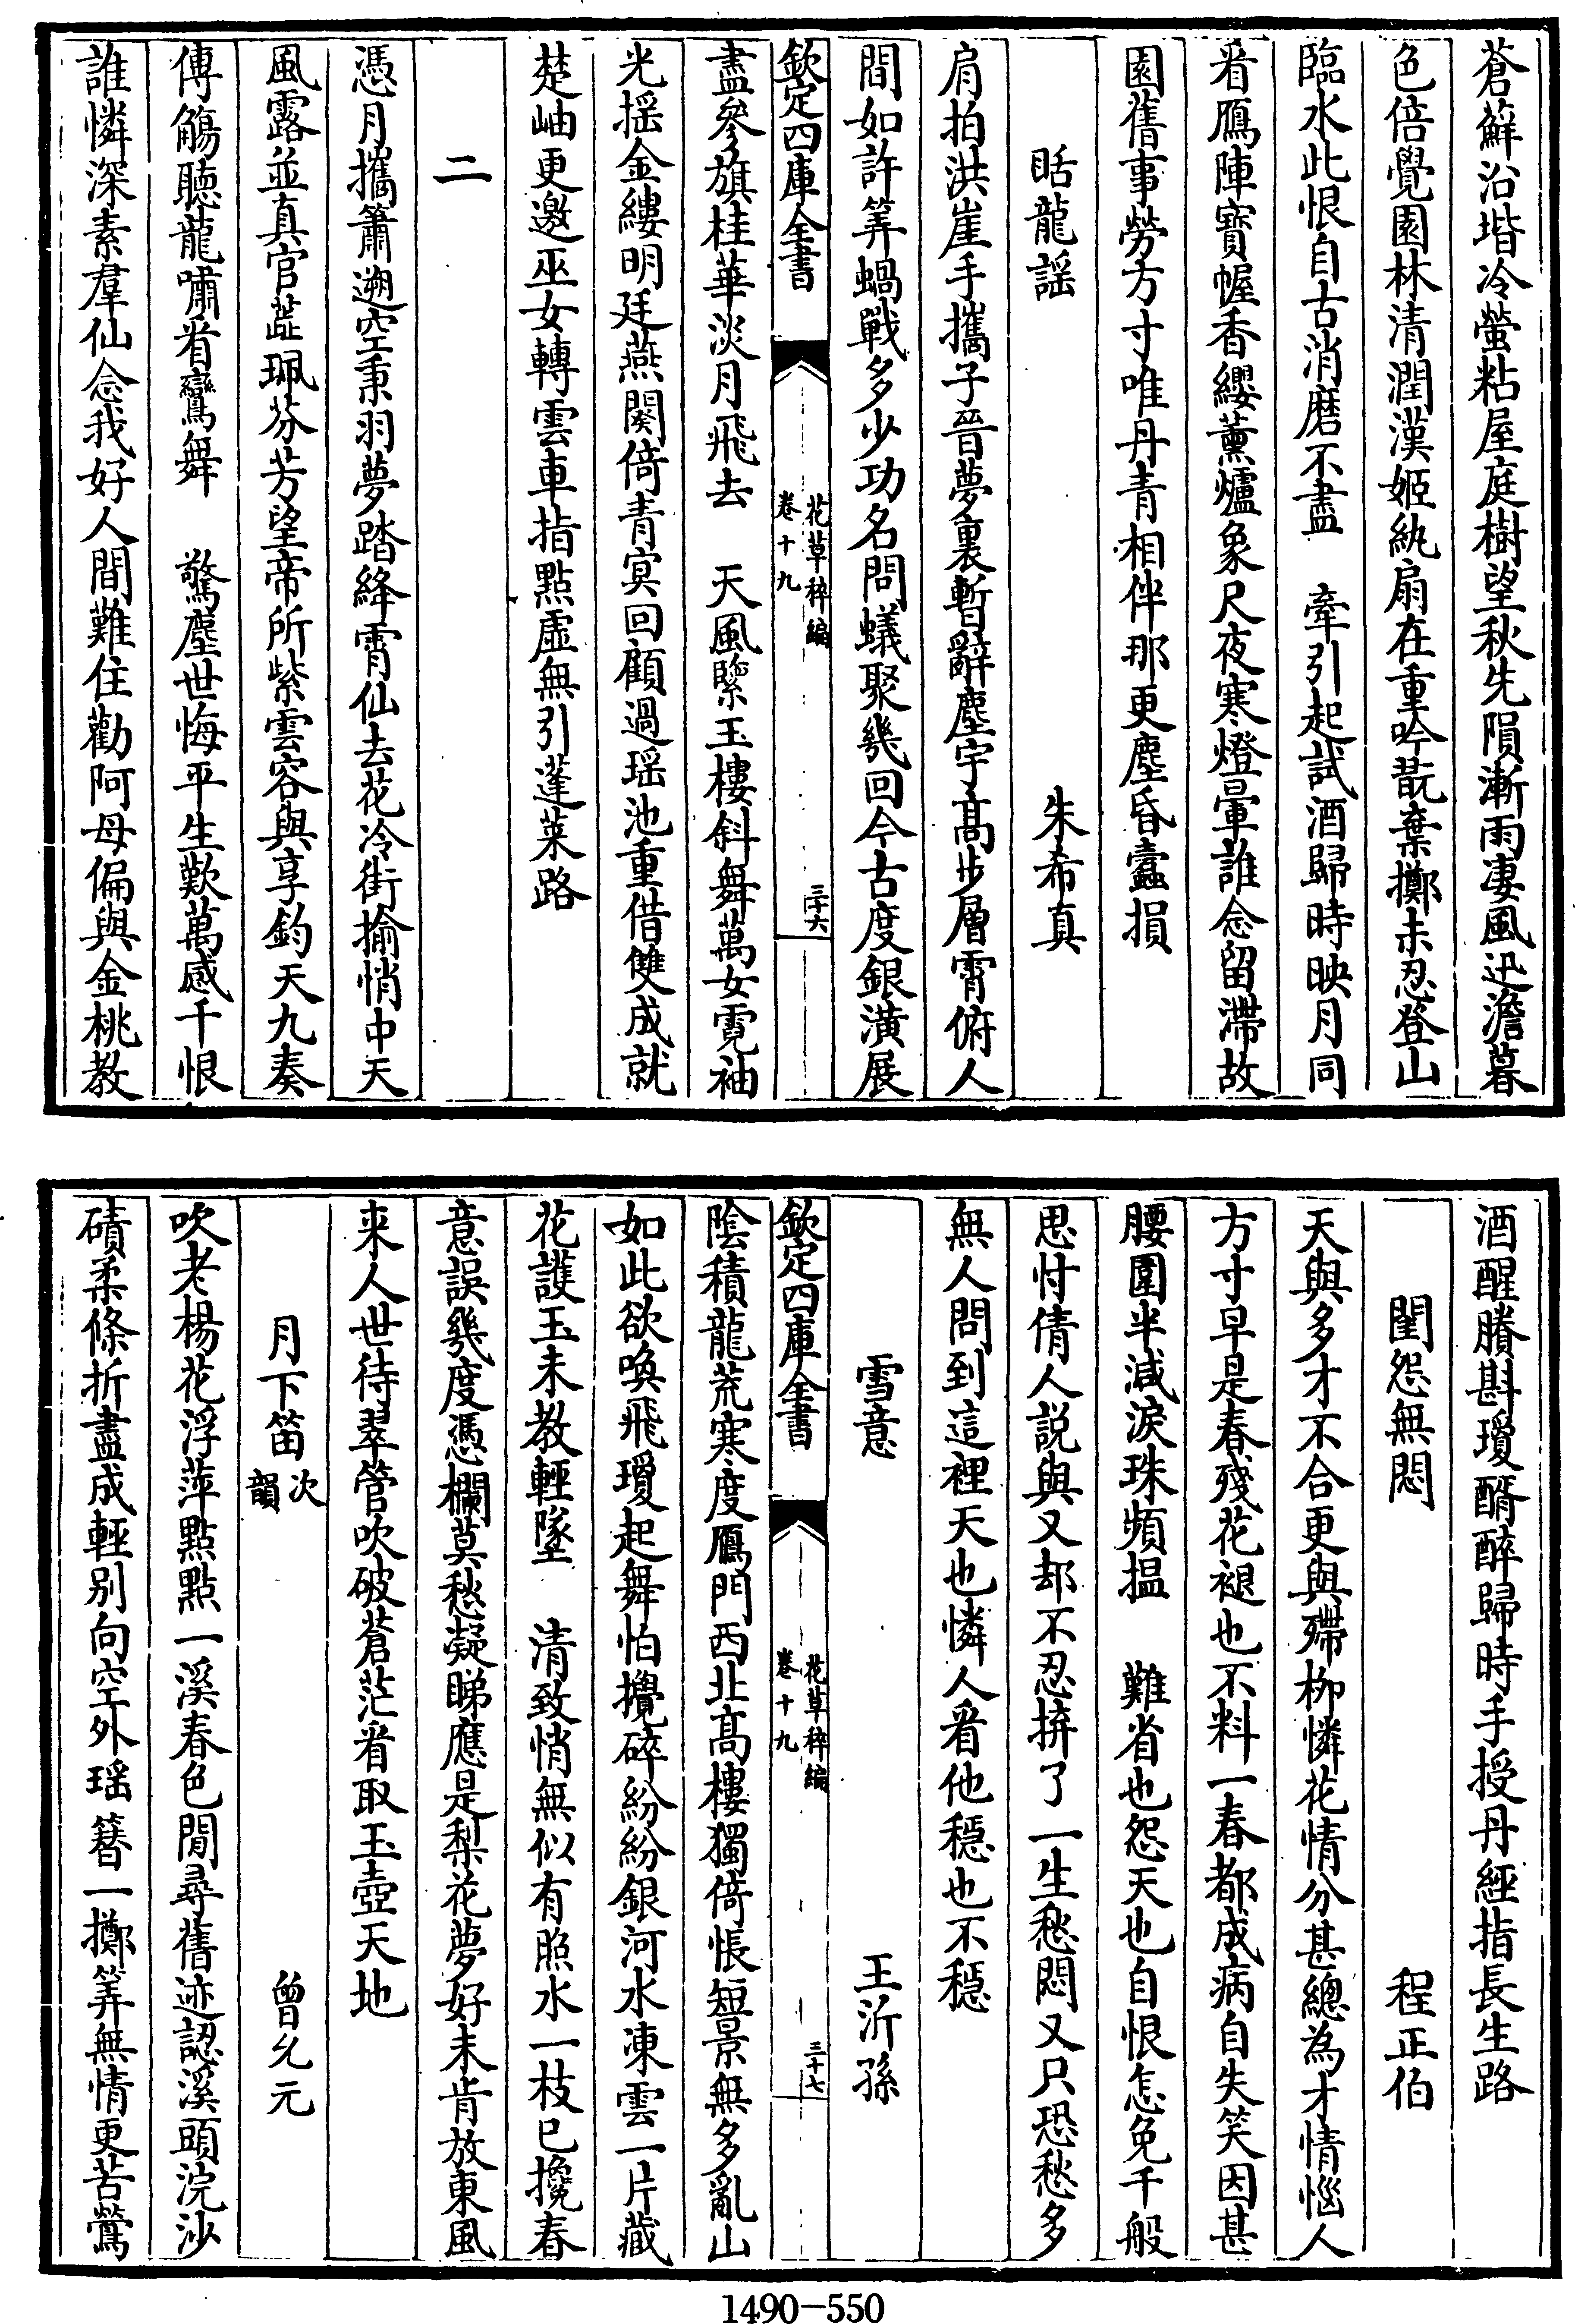 蒼蘚沿堦冷螢粘屋庭樹望秋先隕漸雨淒風迅澹暮
色倍覺園林清潤漢姬紈扇在重吟翫棄擲未忍登山
臨水此恨自古消磨不盡　牽引起試酒歸時映月同
看鴈陣寶幄香纓薰爐象尺夜寒燈暈誰念留滯故
園舊事勞方寸唯丹青相伴那更塵昏蠹損
聒龍謡　朱希真
肩拍洪崖手攜子晉夢裏暫辭塵宇高步層霄俯人
間如許筭蝸戰多少功名問蟻聚幾回今古度銀潢展
欽定四庫全書
花草稡編
卷十九
三十六
盡參旗桂華淡月飛去　天風緊玉樓斜舞萬女霓袖
光揺金縷明廷燕闋倚青㝠回顧過瑶池重借雙成就
楚岫更邀巫女轉雲車指點虚無引蓬萊路
二
憑月攜簫遡空秉羽夢踏絳霄仙去花冷街揄悄中天
風露並真官蘂珮芬芳望帝所紫雲容與享鈞天九奏
傳觴聽龍嘯看鸞舞　驚塵世悔平生歎萬感千恨
誰憐深素羣仙念我好人間難住勸阿母偏與金桃教
酒醒賸斟瓊醑醉歸時手授丹經指長生路
閨怨無悶　程正伯
天與多才不合更與殢柳憐花情分甚總為才情惱人
方寸早是春殘花褪也不料一春都成病自失笑因甚
腰圍半減淚珠頻揾　難省也怨天也自恨怎免千般
思忖倩人説與又却不忍拚了一生愁悶又只恐愁多
無人問到這裡天也憐人看他穩也不穩
雪意　王沂孫
欽定四庫全書
花草稡編
卷十九
三十七
陰積龍荒寒度鴈門西北高樓獨倚悵短景無多亂山
如此欲喚飛瓊起舞怕攪碎紛紛銀河水凍雲一片藏
花護玉未教輕墜　清致悄無似有照水一枝已攙春
意誤幾度憑欄莫愁凝睇應是梨花夢好未肯放東風
来人世待翠管吹破蒼茫看取玉壺天地
月下笛次韻　曾允元
吹老楊花浮萍點點一溪春色閒尋舊迹認溪頭浣沙
磧柔條折盡成輕别向空外瑶簪一擲筭無情更苦鶯
1490—550